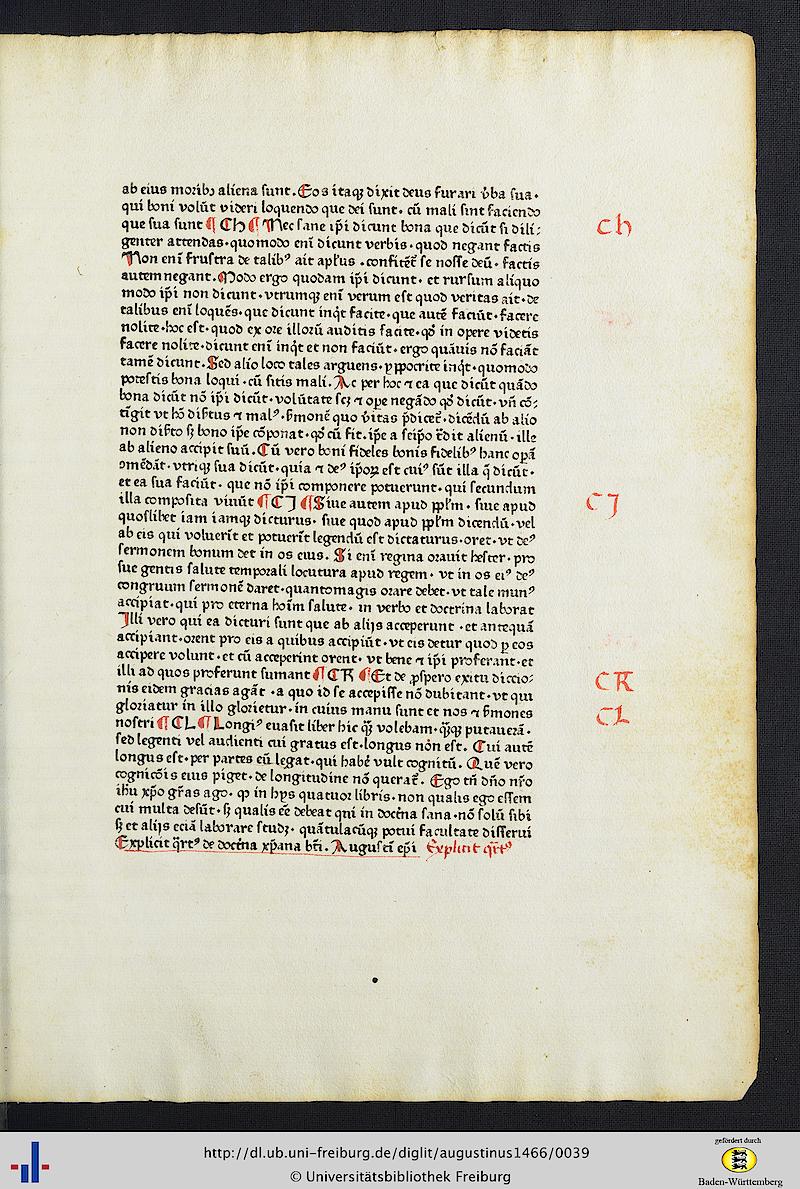 ab eius moribꝫ aliena sunt. Eos itaqꝫ dixit deus furari v̄ba sua.
qui boni volūt videri loquendo que dei sunt. cū mali sint faciendo
que sua sunt ¶ Ch ¶ Nec sane ip̄i dicunt bona que dicūt si dili⸗
genter attendas. quomodo eni͞ dicunt verbis. quod negant factis
Non eni͞ frustra de talibꝰ ait apl̄us. confitēt᷑ se nosse deū. factis
autem negant. Modo ergo quodam ip̄i dicunt. et rursum aliquo
modo ip̄i non dicunt. vtrumqꝫ eni͞ verum est quod veritas ait. de
talibus eni͞ loquēs. que dicunt inq̇t facite. que autē faciūt. facere
nolite. hoc est. quod ex ore illorū auditis facite. qd̛ in opere videtis
facere nolite. dicunt eni͞ inq̇t et non faciūt. ergo quāuis nō faciāt
tamē dicunt. Sed alio loco tales arguens. ypocrite inq̇t. quomodo
potestis bona loqui. cū sitis mali. Ac per hoc ⁊ ea que dicūt quādo
bona dicūt nō ip̄i dicūt. volūtate scꝫ ⁊ oꝑe negādo qd̛ dicūt. vn̄ cō⸗
tīgit vt hō disertus ⁊ malꝰ. s̄monē quo v̄itas p̄dicet᷑. dicēdū ab alio
non dis̄to sꝫ bono ip̄e cōponat. qd̛ cū fit. ip̄e a seip̄o t̄dit alienū. ille
ab alieno accipit suū. Cū vero boni fideles bonis fidelibꝰ hanc oꝑā
ꝯmēdāt. vtriqꝫ sua dicūt. quia ⁊ deꝰ ip̄oꝝ est cuiꝰ sūt illa q̄ dicūt.
et ea sua faciūt. que nō ip̄i componere potuerunt. qui secundum
illa composita viuūt ¶ CJ ¶ Siue autem apud ppl̄m. siue apud
quoslibet iam iamqꝫ dicturus. siue quod apud ppl̄m dicendū. vel
ab eis qui voluerīt et potuerīt legendū est dictaturus. oret. vt deꝰ
sermonem bonum det in os eius. Si eni͞ regina orauit hester. pro
sue gentis salute temporali locutura apud regem. vt in os eiꝰ deꝰ
congruum sermonē daret. quantomagis orare debet. vt tale munꝰ
accipiat. qui pro eterna hoīm salute. in verbo et doctrina laborat
Illi vero qui ea dicturi sunt que ab alijs acceperunt. et antequā
accipiant. orent pro eis a quibus accipiūt. vt eis detur quod ꝑ eos
accipere volunt. et cū acceperint orent. vt bene ⁊ ip̄i proferant. et
illi ad quos proferunt sumant ¶ CK ¶ Et de ꝓspero exitu diccio⸗
nis eidem gracias agāt. a quo id se accepisse nō dubitant. vt qui
gloriatur in illo glorietur. in cuius manu sunt et nos ⁊ s̄mones
nostri ¶ CL ¶ Longiꝰ euasit liber hic q̄ꝫ volebam. q̄ꝫqꝫ putauerā.
sed legenti vel audienti cui gratus est. longus non est. Cui autē
longus est. per partes eū legat. qui habē vult cognitū. Quē vero
cognicōis eius piget. de longitudine nō querat᷑. Ego tn̄ dn̄o nr̄o
ih̄u xp̄o gr̄as ago. ꝙ in hys quatuor libris. non qualis ego essem
cui multa desūt. sꝫ qualis eē debeat qui in doct̄na sana. nō solū sibi
sꝫ et alijs eciā laborare studꝫ. quātulacūqꝫ potui facultate disserui
Explicit q̄rtꝰ de doct̄na xp̄ana bt̄i. Augusti͞ ep̄i Explicit qr̄tꝰ
Ch
CJ
CK
CL
http://dl.ub.uni-freiburg.de/diglit/augustinus1466/0039
© Universitätsbibliothek Freiburg
gefördert durch
Baden-Württemberg